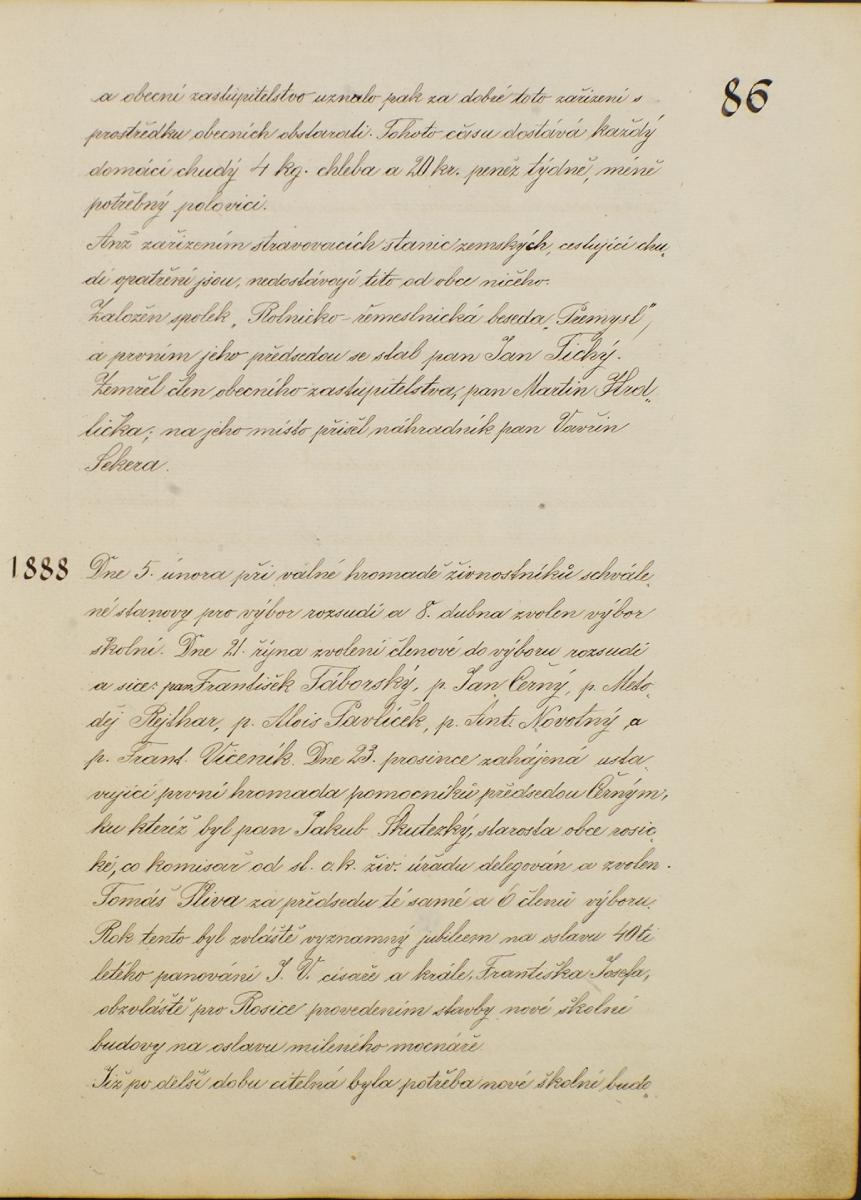 86
a obecní zastupitelstvo uznalo pak za dobré toto zařízení s
prostředku obecních obstarati. Tohoto času dostává každý
domácí chudý 4 kg. chleba a 20 kr. peněz týdně, méně
potřebný polovici.
Anž zařízením stravovacích stanic zemských, cestující chu„
dí opatření jsou, nedostávají tito od obce ničeho.
Založen spolek „Rolnicko-řemeslnická beseda „Přemysl",
a prvním jeho předsedou se stal pan Jan Tichý.
Zemřel člen obecního zastupitelstva, pan Martin Hrd„
lička; na jeho místo přišel náhradník pan Vavřin
Sekera.
1888 Dne 5. února při valné hromadě živnostníků schvále„
né stanovy pro výbor rozsudí a 8. dubna zvolen výbor
školní. Dne 21. října zvoleni členové do výboru rozsudí
a sice: pan František Táborský, p. Jan Černý, p. Meto„
děj Rejthar, p. Alois Pavlíček, p. Ant. Novotný a
p. Frant. Viceník. Dne 23. prosince zahájená usta„
vující první hromada pomocníků předsedou Černým,
ku kteréž byl pan Jakub Skutezký, starosta obce rosic„
ké, co komisař od sl. c. k. živ. úřadu delegován a zvolen
Tomáš Plíva za předsedu té samé a 6 členů výboru.
Rok tento byl zvláště významný jubileem na oslavu 40ti
letého panování J. V. císaře a krále, Františka Josefa,
obzvláště pro Rosice provedením stavby nové školní
budovy na oslavu mileného mocnáře.
Již po delší dobu citelná byla potřeba nové školní budo„